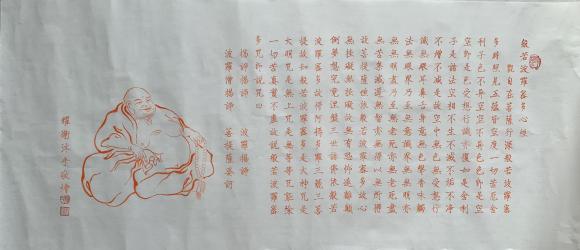 般若波羅蜜多心經
觀自在菩薩行深般若波羅蜜
多時照見五蘊皆空度一切苦厄舍
利子色不異空空不異色色即是空
空即是色受想行識亦復如是舍利
子是諸法空相不生不滅不垢不淨
不增不減是故空中無色無受想行
識無眼耳鼻舌身意無色聲香味觸
法無眼界乃至無意識界無無明亦
無無明盡乃至無老死亦無老死盡
無苦集滅道無智亦無得以無所得
故菩提薩埵依般若波羅蜜多故心
無挂礙無挂礙故無有恐怖遠離顛
倒夢想究竟涅盤三世諸佛依般若
波羅蜜多故得阿耨多羅三藐三菩
提故知般若波羅蜜多是大神咒是
大明咒是無上咒是無等等咒能除
一切苦真實不虛故說般若波羅蜜
多咒即說咒曰
揭諦揭諦 波羅揭諦
波羅僧揭諦 菩提薩婆訶
沐手敬繪